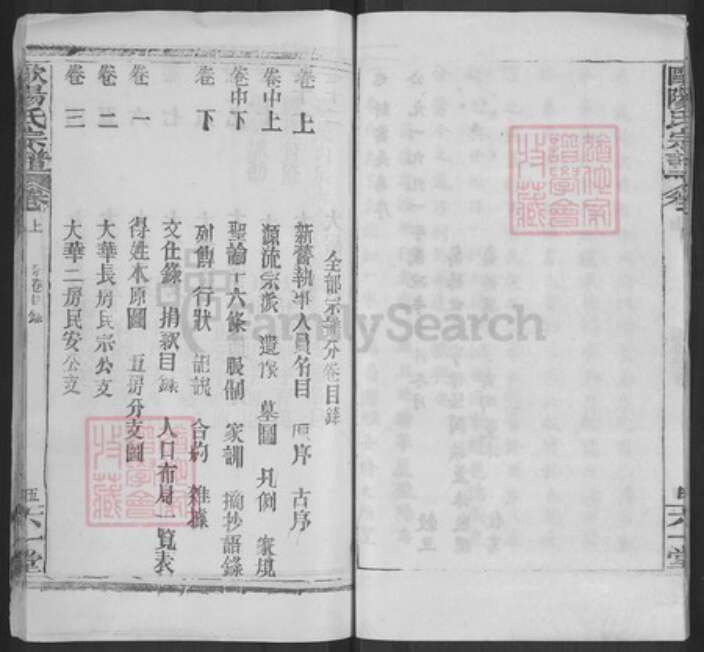 歐陽氏宗譜
六一堂
全部宗譜分卷目錄
卷上 新譜執事人員名目 序 古序
卷中上 源流宗派 遺像 墓圖 凡例 家規
卷中下 聖諭十六條 服制 家訓 摘抄語錄
卷下 列傳 行狀 記說 合約 雜據
文仕錄 捐款目錄 人口布局一覽表
卷一 得姓本原圖 五房分支圖
卷二 大華長房民宗公支
卷三 大華二房民安公支
歐陽氏宗譜 卷上 分卷目錄 五 六一堂
譜仙家譜學會收藏
譜仙家譜學會收藏
FamilySearch